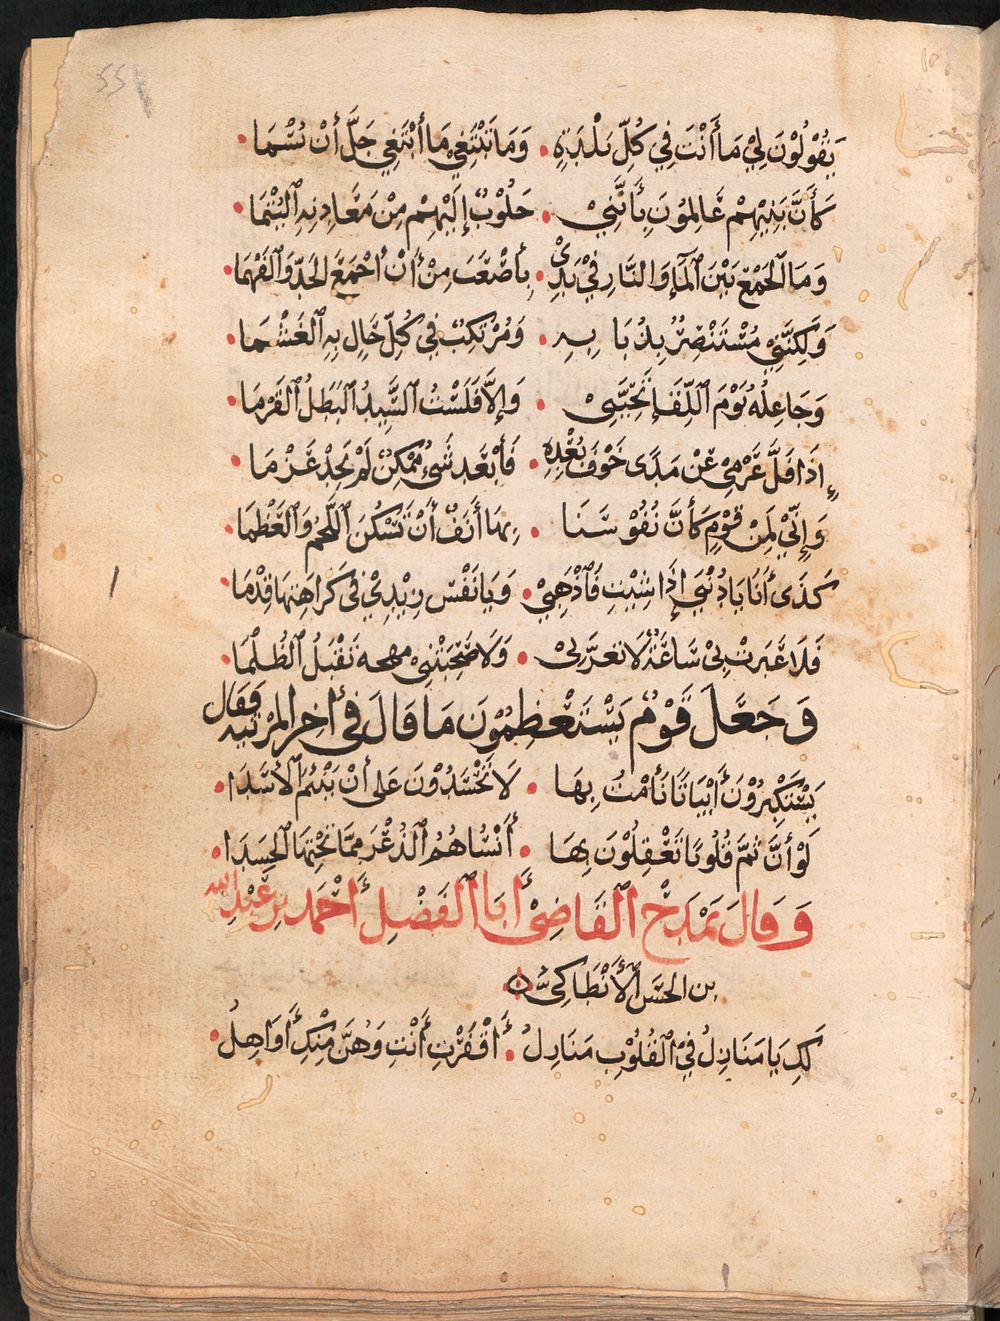 55
يَقُوْلُوْنَ لِيْ مَا أَنْتَ فِي كُلِّ بَلْدَةٍ • وَمَا تَبْتَغِيْ مَا أَبْتَغِي جَلَّ أَنْ يُسْمَا •
كَأَنَّ بَنِيْهِمْ عَالِمُوْنَ بِأَنَّنِيْ • جَلُوْبٌ إِلَيْهِمْ مِنْ مَعَادِنِهِ ٱلْيُتْمَا •
وَمَا ٱلْجَمْعُ بَيْنَ ٱلْمَآءِ وَالنَّارِ فِيْ يَدِيْ • بِأَصْعَبَ مِنْ أَنْ أَجْمَعَ الجَدَّ وَٱلْفَهْمَا •
وَلَكِنَّنِيْ مُسْتَنْصِرٌ بِذُبَابِهِ • وَمُرْتَكِبٌ فِي كُلِّ حَالٍ بِهِ ٱلْغَشْمَا •
وَجَاعِلُهُ يَوْمَ ٱللِّقَآءِ تَحِيَّتِيْ • وَإِلَّا فَلَسْتُ ٱلسَّيِّدُ ٱلْبَطَلُ ٱلْقَرْمَا •
إِذَا فَلَّ عَزْمِيْ عَنْ مَدًى خَوْفُ بُعْدِهِ • فَأَبْعَدُ شَيْءٍ مُمْكِنٌ لَمْ يَجِدْ عَزْمَا •
وَإِنِّيْ لَمِنْ قَوْمٍ كَأَنَّ نُفُوْسَنَا • بِهَا أَنَفٌ أَنْ تَسْكُنَ ٱللَّحْمَ وَٱلْعَظْمَا •
كَذَى أَنَا يَا دُنْيَي إِذَا شِيْتِ فَٱذْهَبِيْ • وَيَا نَفْسُ زِيْدِيْ فِي كَرَاهِتِهَا قِدْمَا •
فَلَا عَبَرَتْ بِيْ سَاعَةٌ لَا تُعَزِّزُنِيْ • وَلَا صَحِبَتْنِيْ مهجة تَقْبَلُ ٱلظُّلْمَا •
وَجَعَلَ قَوْمٌ يَسْتَعْظِمُوْنَ مَا قَالَ فِي أٰخِرِ المَرْثِيَه فَقَالَ
يَسْتَكْبِرُوْنَ أَبْيَاتًا نَأَمْتُ بِهَا • لَا تَحْسُدُوْنَ عَلَى أَنْ يَنْئِمَ ٱلْأَسَدَا •
لَوْ أَنَّ ثَمَّ قُلُوبًا تَعْقِلُوْنَ بِهَا • أَنْسَاهُمُ ٱلذُّعْرُ مِمَّا تَحْتِهَا ٱلْحَسَدَا •
وَقَالَ يَمْدَحُ ٱلقَاضِيْ أَبَا ٱلْفَضْلِ أَحْمَد بن عَبْدِ الله
بن الحسن ٱلْأَنْطَاكِيّ
لَكِ يَا مَنَازِلُ فِيْ ٱلْقُلُوْبِ مَنَازِلُ • أَقْفَرْتِ أَنْتِ وَهُنَّ مِنْكِ أَوَاهِلُ •